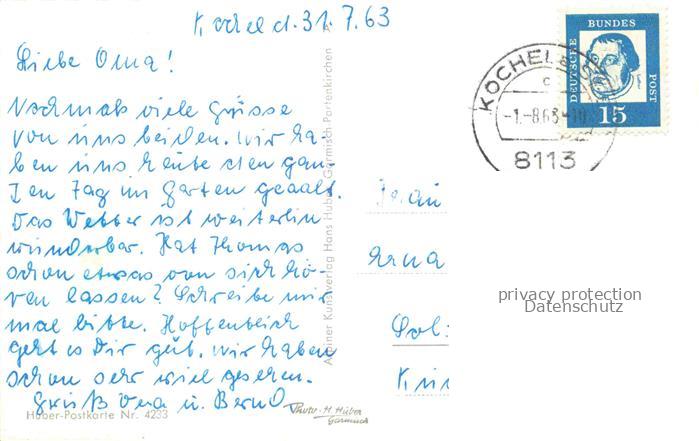 Kochel d. 31.7.63
Liebe Oma!
Nochmals viele Grüsse
von uns beiden. Wir ha-
ben uns heute den gan-
zen Tag im Garten geaalt.
Das Wetter ist weiterhin
wunderbar. Hat Thomas
schon etwas von sich hö-
ren lassen? Schreibe mir
mal bitte. Hoffentlich
geht es Dir gut. Wir haben
schon sehr viel gesehen.
Gruß u. Bernd
Huber-Postkarte Nr. 4233
Photo-H. Huber
Garmisch
Alpiner Kunstverlag Hans Huber, Garmisch-Partenkirchen
KOCHEL
-1.-8.63-
8113
DEUTSCHE BUNDES POST
15
Erna
privacy protection
Datenschutz